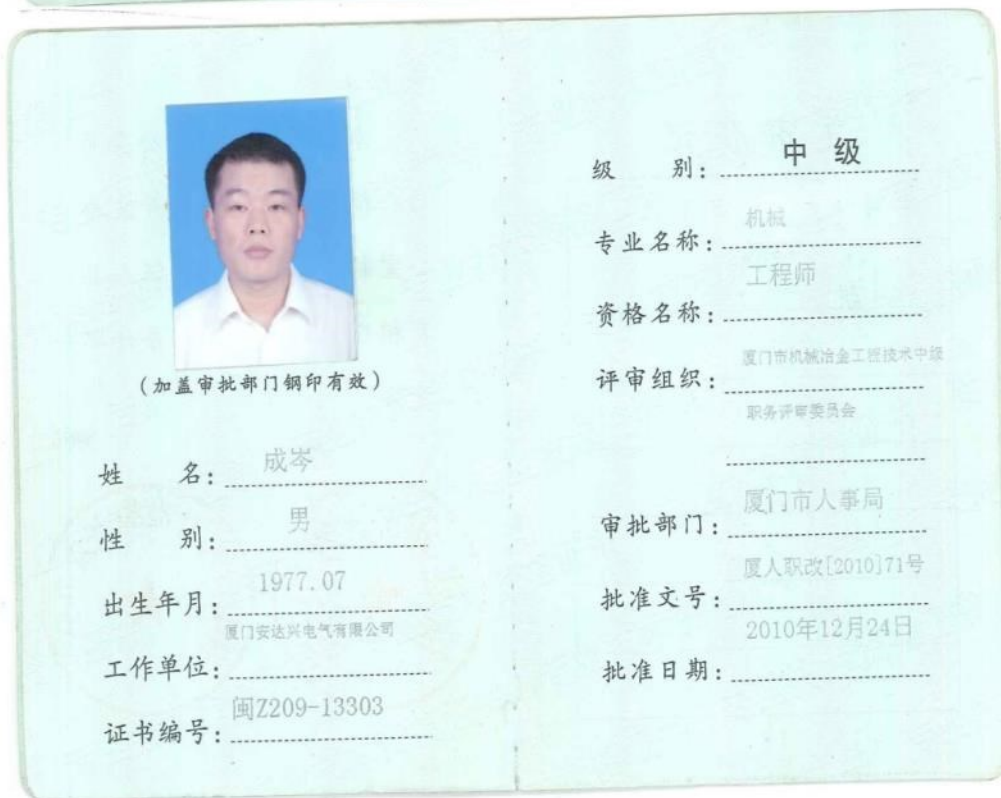 (加盖审批部门钢印有效)
姓 名: 成岑
性 别: 男
出生年月: 1977.07
厦门安达兴电气有限公司
工作单位:
证书编号: 闽Z209-13303
级 别: 中 级
专业名称: 机械
资格名称: 工程师
厦门市机械冶金工程技术中级
评审组织:
职务评审委员会
审批部门: 厦门市人事局
批准文号: 厦人职改[2010]71号
批准日期: 2010年12月24日